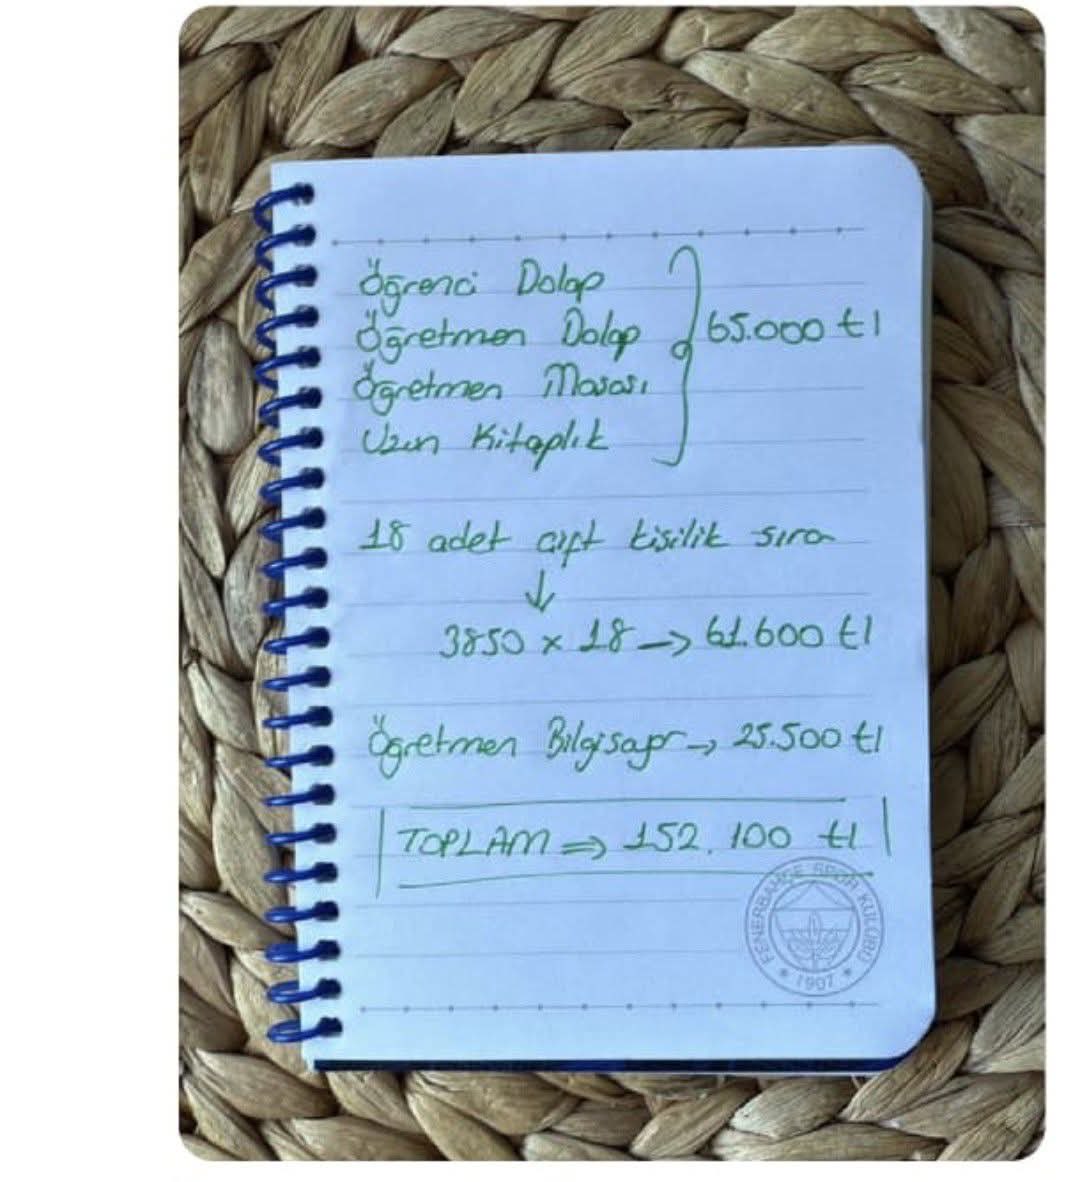 Öğrenci Dolap
Öğretmen Dolap
65.000 tl
Öğretmen Masası
Uzun Kitaplık
18 adet çift kişilik sıra
↓
3850 x 18 → 61.600 tl
Öğretmen Bilgisayr → 25.500 tl
TOPLAM ⇒ 152.100 tl
FENERBAHÇE SPOR KULÜBÜ
★ 1907 ★